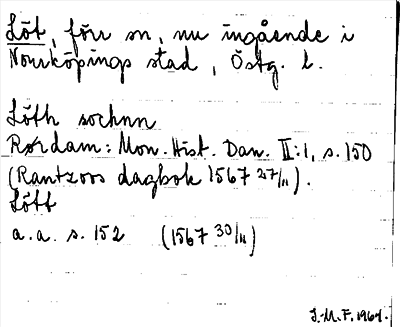 Löt, förr sn, nu ingående i
Norrköpings stad, Östg. l.
Löth sochnn
Rørdam: Mon. Hist. Dan. II:1, s. 150
(Rantzovs dagbok 1567 27/11).
Lött
a.a. s. 152 (1567 30/11)
J.M.F. 1964.